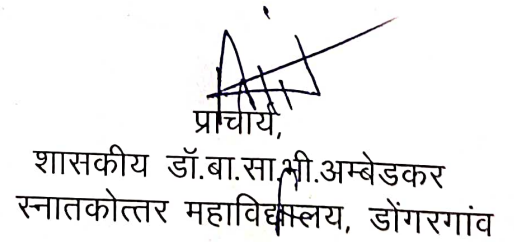 प्राचार्य,
शासकीय डॉ.बा.सा.भी.अम्बेडकर
स्नातकोत्तर महाविद्यालय, डोंगरगांव